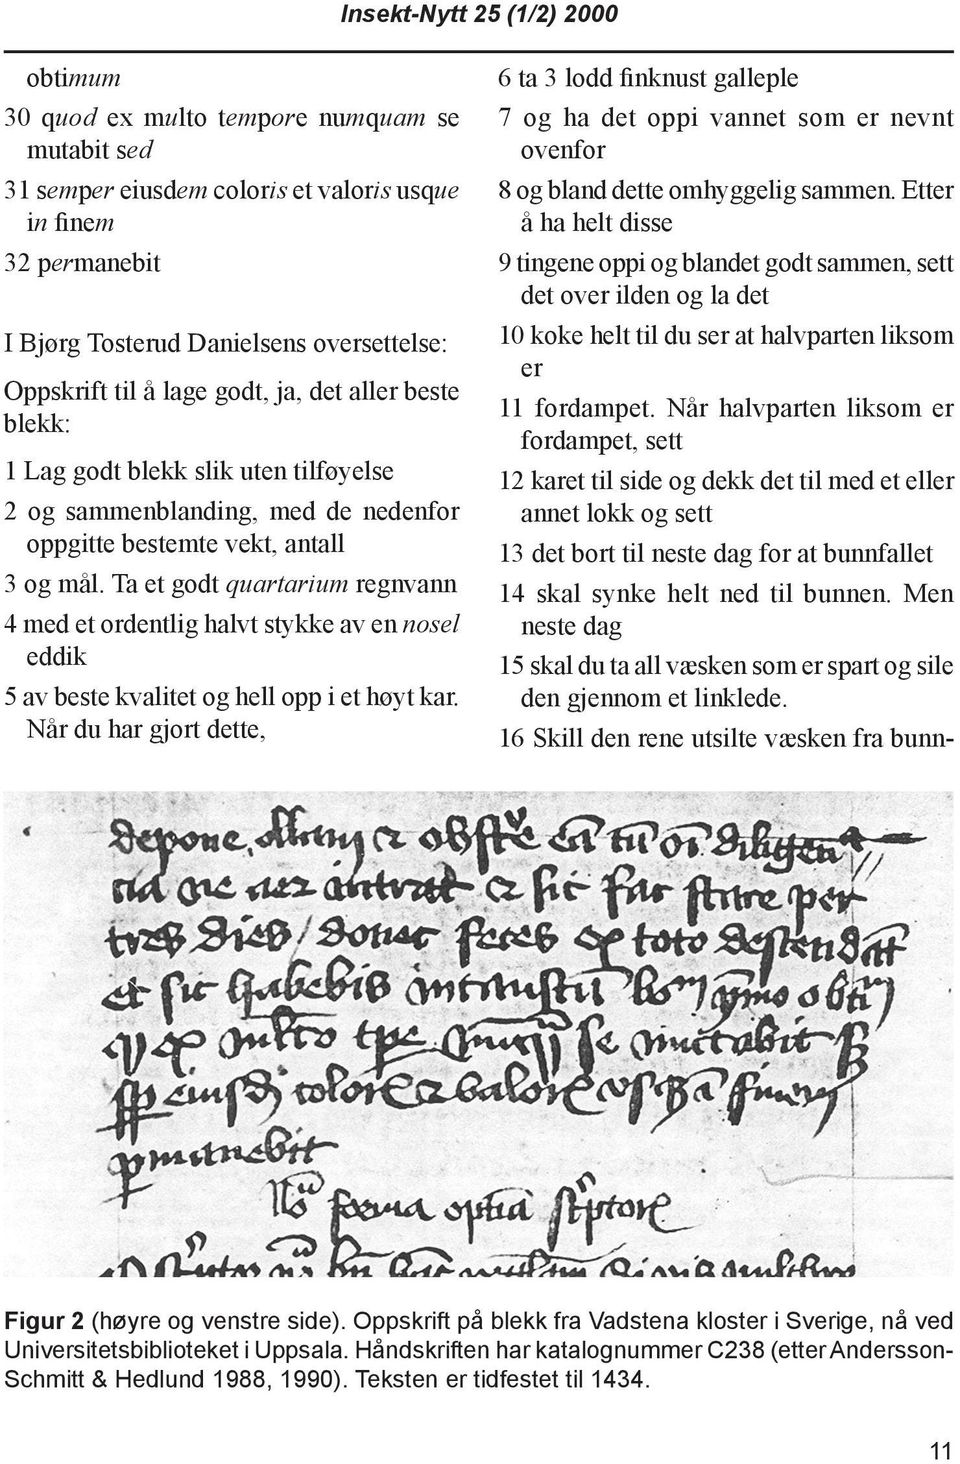 Insekt-Nytt 25 (1/2) 2000
obtimum
30 quod ex multo tempore numquam se
mutabit sed
31 semper eiusdem coloris et valoris usque
in finem
32 permanebit
I Bjørg Tosterud Danielsens oversettelse:
Oppskrift til å lage godt, ja, det aller beste
blekk:
1 Lag godt blekk slik uten tilføyelse
2 og sammenblanding, med de nedenfor
oppgitte bestemte vekt, antall
3 og mål. Ta et godt quartarium regnvann
4 med et ordentlig halvt stykke av en nosel
eddik
5 av beste kvalitet og hell opp i et høyt kar.
Når du har gjort dette,
6 ta 3 lodd finknust galleple
7 og ha det oppi vannet som er nevnt
ovenfor
8 og bland dette omhyggelig sammen. Etter
å ha helt disse
9 tingene oppi og blandet godt sammen, sett
det over ilden og la det
10 koke helt til du ser at halvparten liksom
er
11 fordampet. Når halvparten liksom er
fordampet, sett
12 karet til side og dekk det til med et eller
annet lokk og sett
13 det bort til neste dag for at bunnfallet
14 skal synke helt ned til bunnen. Men
neste dag
15 skal du ta all væsken som er spart og sile
den gjennom et linklede.
16 Skill den rene utsilte væsken fra bunn-
depone
aer et sic fac stare per
tres dies / donec feces ex toto
et sic habebis
ex se mutabit
forma
Figur 2 (høyre og venstre side). Oppskrift på blekk fra Vadstena kloster i Sverige, nå ved
Universitetsbiblioteket i Uppsala. Håndskriften har katalognummer C238 (etter Andersson-
Schmitt & Hedlund 1988, 1990). Teksten er tidfestet til 1434.
11